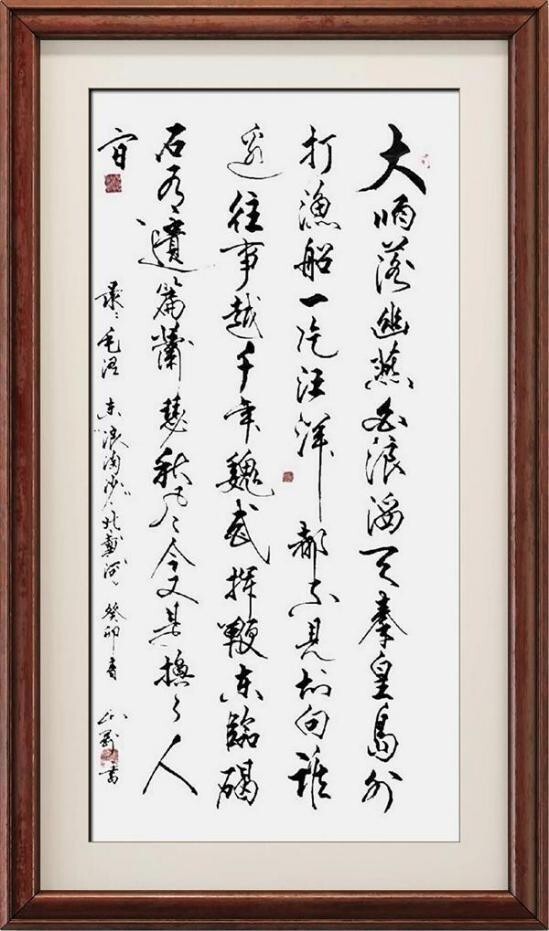 大雨落幽燕白浪滔天秦皇島外
打漁船一片汪洋都不見知向誰
邊往事越千年魏武揮鞭东臨碣
石有遺篇蕭瑟秋风今又是換了人
间
录毛泽东浪淘沙北戴河 癸卯春 书